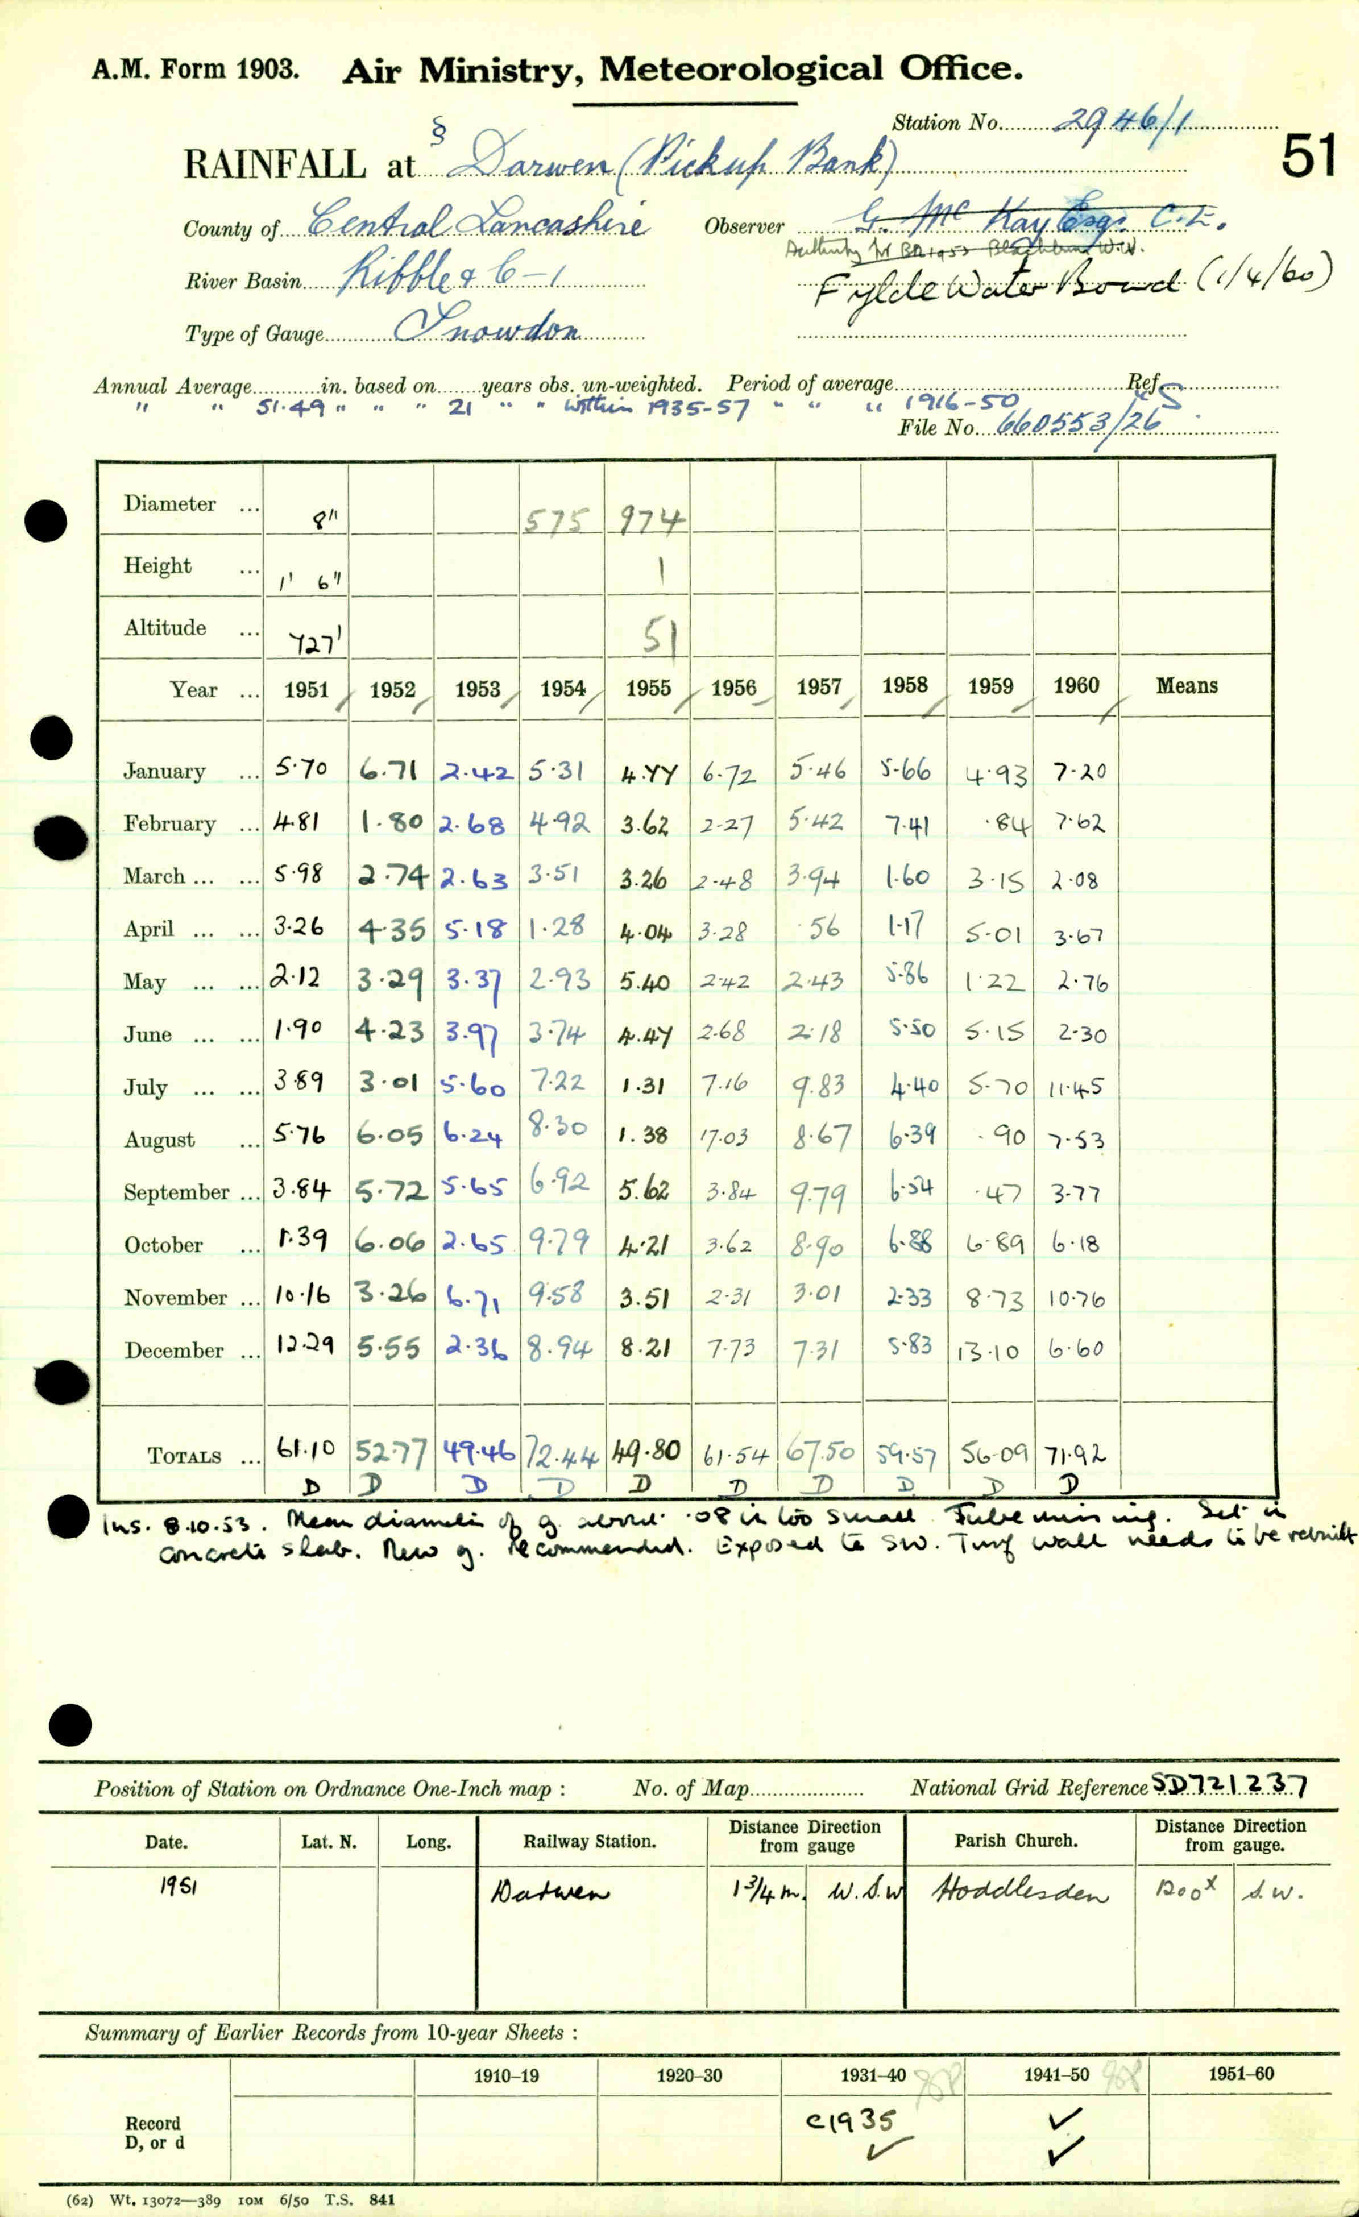 A.M. Form 1903. Air Ministry, Meteorological Office.
Station No. 2946/1
§
RAINFALL at Darwen (Pickup Bank)
51
County of Central Lancashire Observer G. McKay Esq. C.E.
River Basin Ribble & C-1 Fylde Water Board (1/4/60)
Type of Gauge Snowdon
Annual Average in. based on years obs. un-weighted. Period of average Ref.
" " 51.49 " " " 21 " " within 1935-57 " " " 1916-50
File No. 660553/26
Diameter ... 8" 575 974
Height ... 1' 6" 1
Altitude ... 727' 51
Year ... 1951 1952 1953 1954 1955 1956 1957 1958 1959 1960 Means
January ... 5.70 6.71 2.42 5.31 4.77 6.72 5.46 5.66 4.93 7.20
February ... 4.81 1.80 2.68 4.92 3.62 2.27 5.42 7.41 .84 7.62
March ... ... 5.98 2.74 2.63 3.51 3.26 2.48 3.94 1.60 3.15 2.08
April ... ... 3.26 4.35 5.18 1.28 4.04 3.28 .56 1.17 5.01 3.67
May ... ... 2.12 3.29 3.37 2.93 5.40 2.42 2.43 5.86 1.22 2.76
June ... ... 1.90 4.23 3.97 3.74 4.47 2.68 2.18 5.50 5.15 2.30
July ... ... 3.89 3.01 5.60 7.22 1.31 7.16 9.83 4.40 5.70 11.45
August ... 5.76 6.05 6.24 8.30 1.38 17.03 8.67 6.39 .90 7.53
September ... 3.84 5.72 5.65 6.92 5.62 3.84 9.79 6.54 .47 3.77
October ... 1.39 6.06 2.65 9.79 4.21 3.62 8.90 6.88 6.89 6.18
November ... 10.16 3.26 6.71 9.58 3.51 2.31 3.01 2.33 8.73 10.76
December ... 12.29 5.55 2.36 8.94 8.21 7.73 7.31 5.83 13.10 6.60
TOTALS ... 61.10 52.77 49.46 72.44 49.80 61.54 67.50 59.57 56.09 71.92
D D D D D D D D D D
Ins. 8.10.53. Mean diameter of g. about .08 in too small. Tube missing. Set in
concrete slab. New g. recommended. Exposed to SW. Turf wall needs to be rebuilt
Position of Station on Ordnance One-Inch map : No. of Map National Grid Reference SD721237
Date. Lat. N. Long. Railway Station. Distance Direction from gauge Parish Church. Distance Direction from gauge.
1951 Darwen 1 3/4 m. W.S.W Hoddlesden 1200x S.W.
Summary of Earlier Records from 10-year Sheets :
1910–19 1920–30 1931–40 1941–50 1951–60
Record
D, or d
c1935 ✓ ✓ ✓
(62) Wt. 13072—389 10M 6/50 T.S. 841